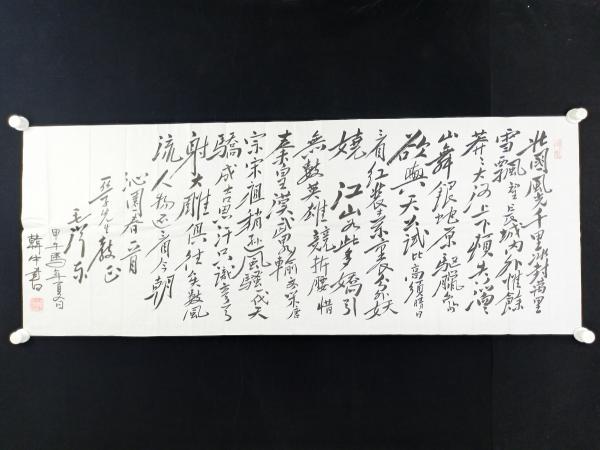 北國風光千里冰封萬里
雪飄望長城内外惟餘
莽々大河上下頓失滔々
山舞銀蛇原馳臘象
欲與天公試比高須晴日
看紅裝素裹分外妖
嬈 江山如此多嬌引
無數英雄競折腰惜
秦皇漢武略輸文采唐
宗宋祖稍遜風騷一代天
驕成吉思汗只識彎弓
射大雕俱往矣數風
流人物還看今朝
沁園春 雪
先生教正
毛澤東
甲午馬年夏日
韓